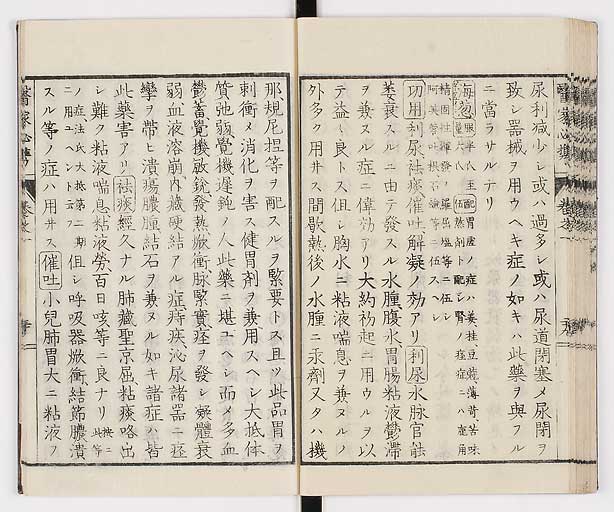 尿利减少シ或ハ過多シ或ハ尿道閉塞メ尿閉ヲ
致シ器械ヲ用ウヘキ症ノ如キハ此藥ヲ與フル
ニ當ラサルナリ
海葱
功用 利尿袪痰催吐解凝ノ効アリ 利尿 水脉官能
萎衰スルニ由テ發スル水腫腹水胃腸粘液鬱滯
ヲ兼スル症ニ偉効アリ大約初起ニ用ウルヲ以
テ益シ良トス但シ胸水ニ粘液喘息ヲ兼ヌルノ
外多ク用ヰス間歇熱後ノ水腫ニ汞劑又タハ機
那規尼捏等ヲ配スルヲ緊要トス且ツ此品胃ヲ
刺衝メ消化ヲ害ス健胃劑ヲ兼用スヘシ大抵体
質弛弱覺機遲鈍ノ人此藥ニ堪ユヘシ而メ多血
鬱蓄覺機敏銳發熱焮衝脉緊實痙ヲ發シ凝體衰
弱血液溶崩内臟硬結アル症痔疾泌尿諸器ニ痙
攣ヲ帶ヒ潰瘍膿腫結石ヲ兼ヌル如キ諸症ハ皆
此藥害アリ 袪痰 經久ナル肺臟聖京屈粘痰咯出
シ難ク粘液喘息粘液勞百日咳等ニ良ナリ
ノ症法氏大接第二期
ニ用ユヘシト云 但シ呼吸器焮衝結節膿潰
スル等ノ症ハ用ヰス 催吐 小兒肺胃大ニ粘液ヲ